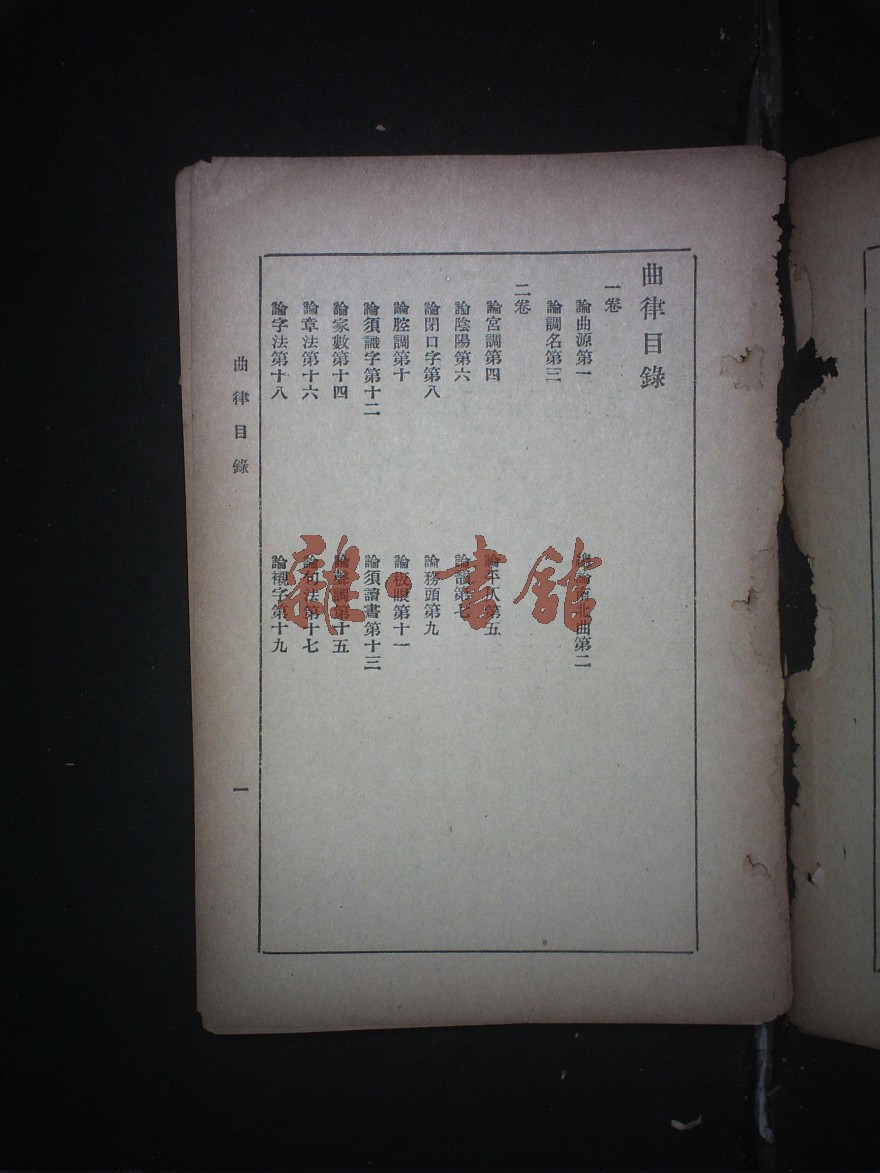 曲律目錄
一卷
論曲源第一　總論南北曲第二
論調名第三
二卷
論宮調第四　論平仄第五
論陰陽第六　論韻第七
論閉口字第八　論務頭第九
論腔調第十　論板眼第十一
論須識字第十二　論須讀書第十三
論家數第十四　論聲調第十五
論章法第十六　論句法第十七
論字法第十八　論襯字第十九
曲律目錄
一
雜·書館